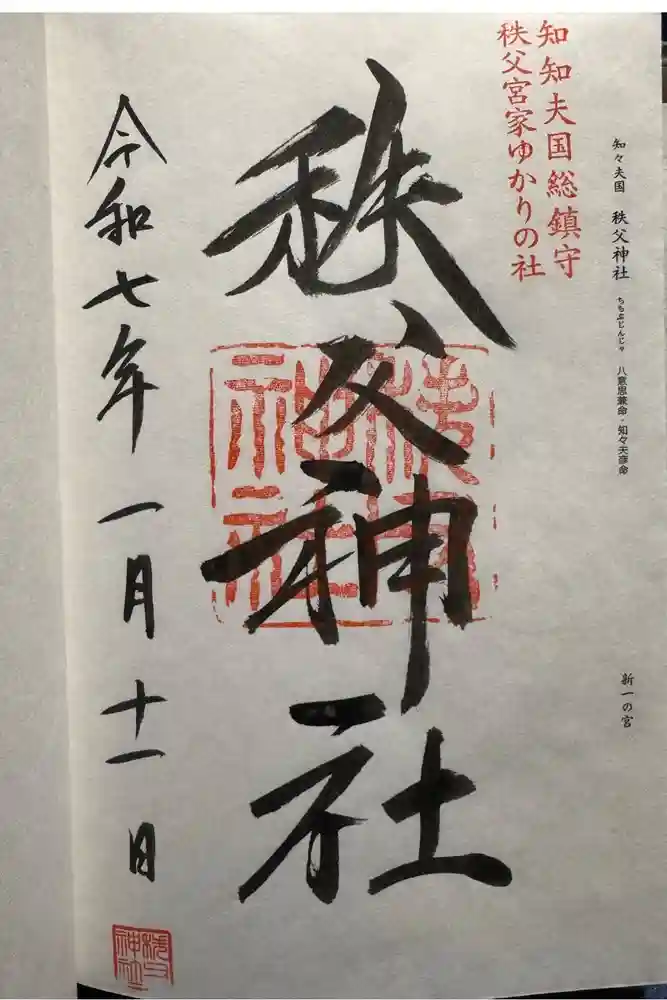 知々夫国 秩父神社 ちちぶじんじゃ 八意思兼命・知々夫彦命
新一の宮
知知夫国総鎮守
秩父宮家ゆかりの社
秩父神社
秩父神社
令和七年一月十一日
秩父神社